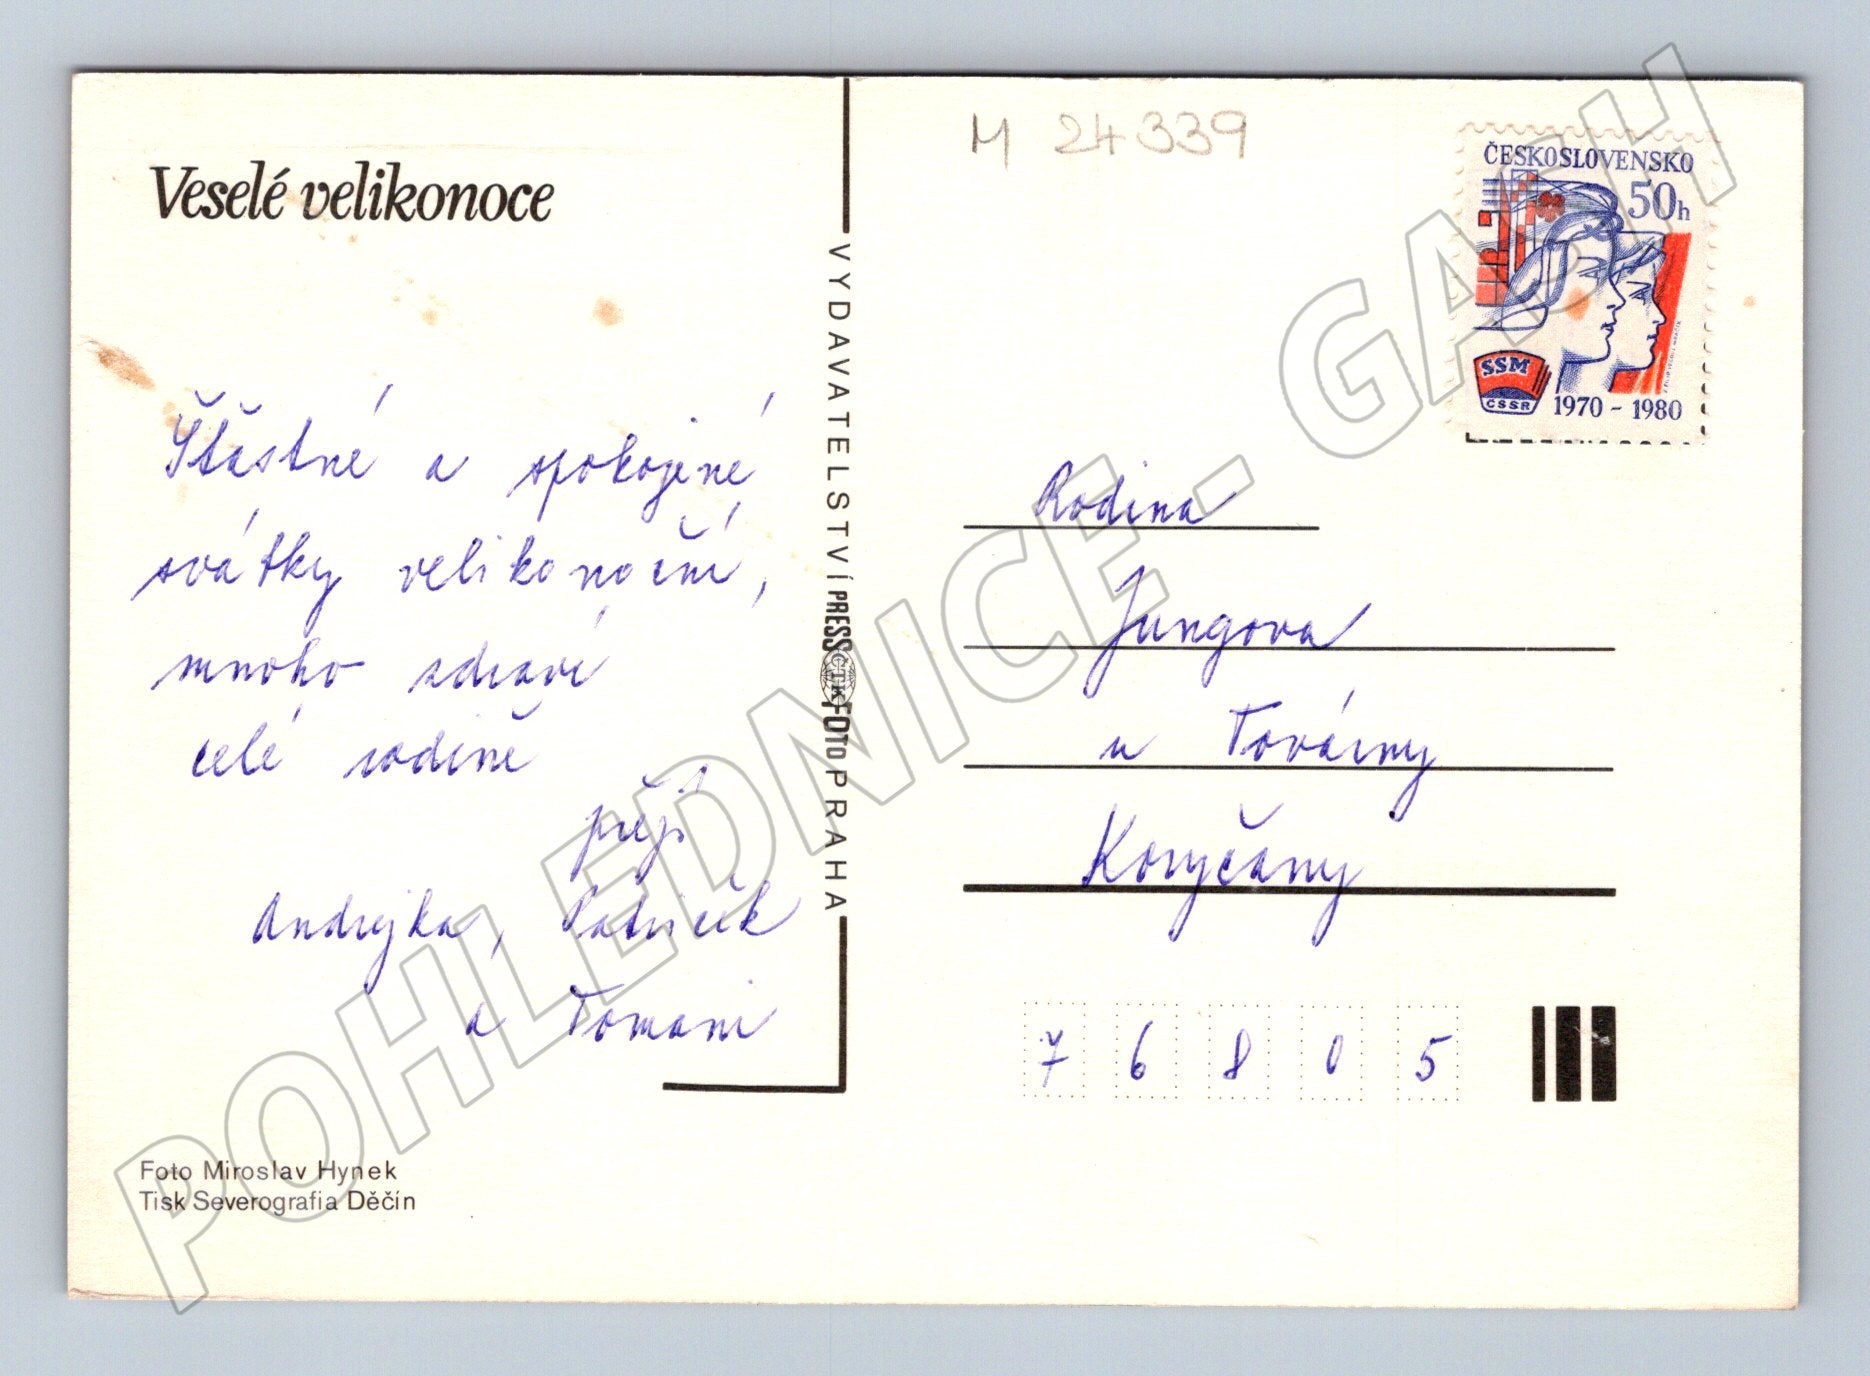 Veselé velikonoce
Šťastné a spokojené
svátky velikonoční,
mnoho zdraví
celé rodině
přejí
Andrejka, Patriček
a Tomani
Foto Miroslav Hynek
Tisk Severografia Děčín
VYDAVATELSTVÍ PRESSFOTO PRAHA
ČTK
M 24339
ČESKOSLOVENSKO
50h
SSM
ČSSR
1970 - 1980
Rodina
Jungova
u Továrny
Koryčany
7 6 8 0 5
POHLEDNICE - GASH